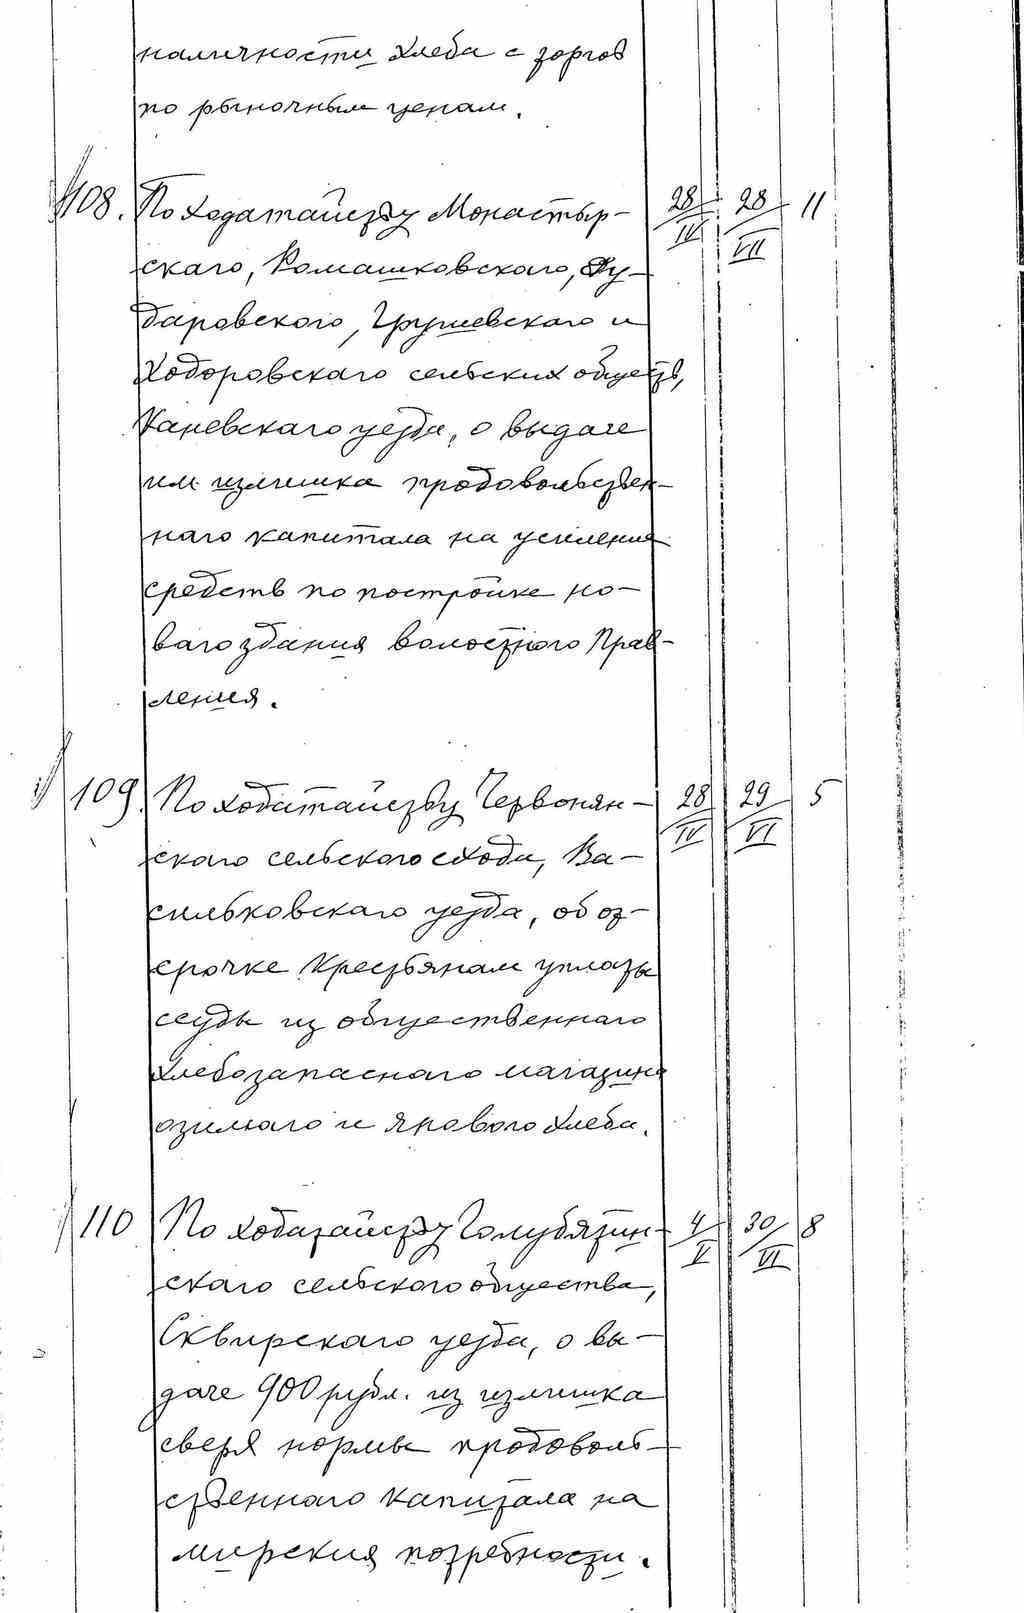 наличности хлеба с торгов
по рыночным ценам.
108. По ходатайству Монастыр- 28/IV 28/VII 11
скаго, Ромашковскаго, Ду-
даровского, Грушевскаго и
Ходоровскаго сельских обществ,
Каневскаго уезда, о выдаче
им излишка продовольствен-
наго капитала на усиления
средств по постройке но-
ваго здания волостного Прав-
ления.
109. По ходатайству Червонян- 28/IV 29/VI 5
скаго сельского схода, Ва-
сильковскаго уезда, об от-
срочке крестьянам уплаты
ссуды из общественнаго
хлебозапаснаго магазина
озимаго и яроваго хлеба.
110 По ходатайству Голубятин- 4/V 30/VI 8
скаго сельского общества,
Сквирскаго уезда, о вы-
даче 900 рубл. из излишка
сверх нормы продоволь-
ственнаго капитала на
мирския потребности.